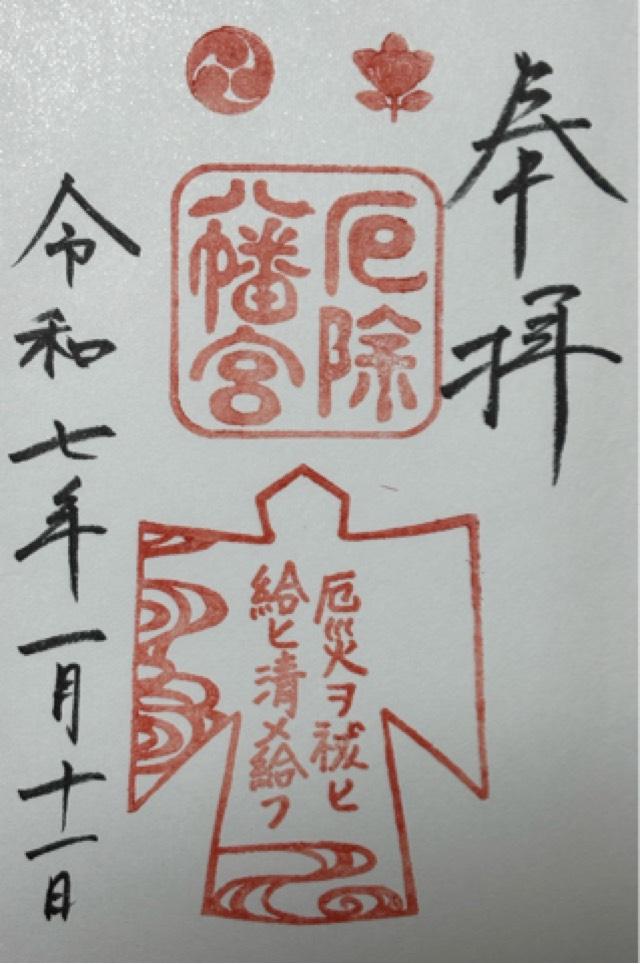 奉拝
厄除
八幡宮
厄災ヲ祓ヒ
給ヒ清メ給フ
令和七年一月十一日